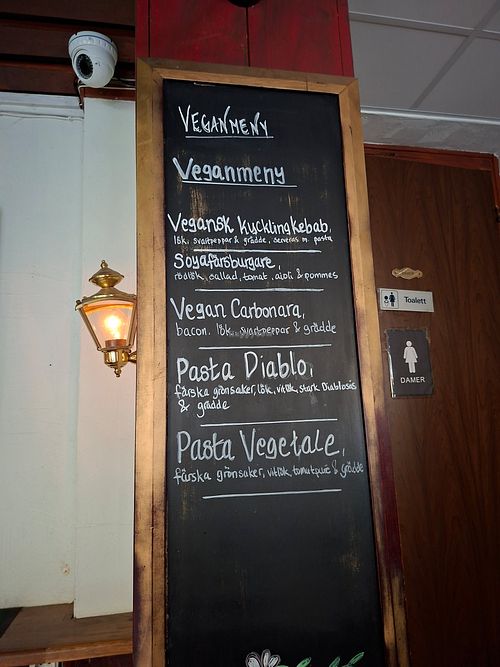 VEGANMENY
Veganmeny
Vegansk Kyckling Kebab,
lök, svartpeppar & grädde, serveras m. pasta
Soyafärsburgare,
rödlök, sallad, tomat, aioli & pommes
Vegan Carbonara,
bacon, lök, svartpeppar & grädde
Pasta Diablo,
färska grönsaker, lök, vitlök, stark Diablosås
& grädde
Pasta Vegetale,
färska grönsaker, vitlök, tomatpuré & grädde
Toalett
DAMER